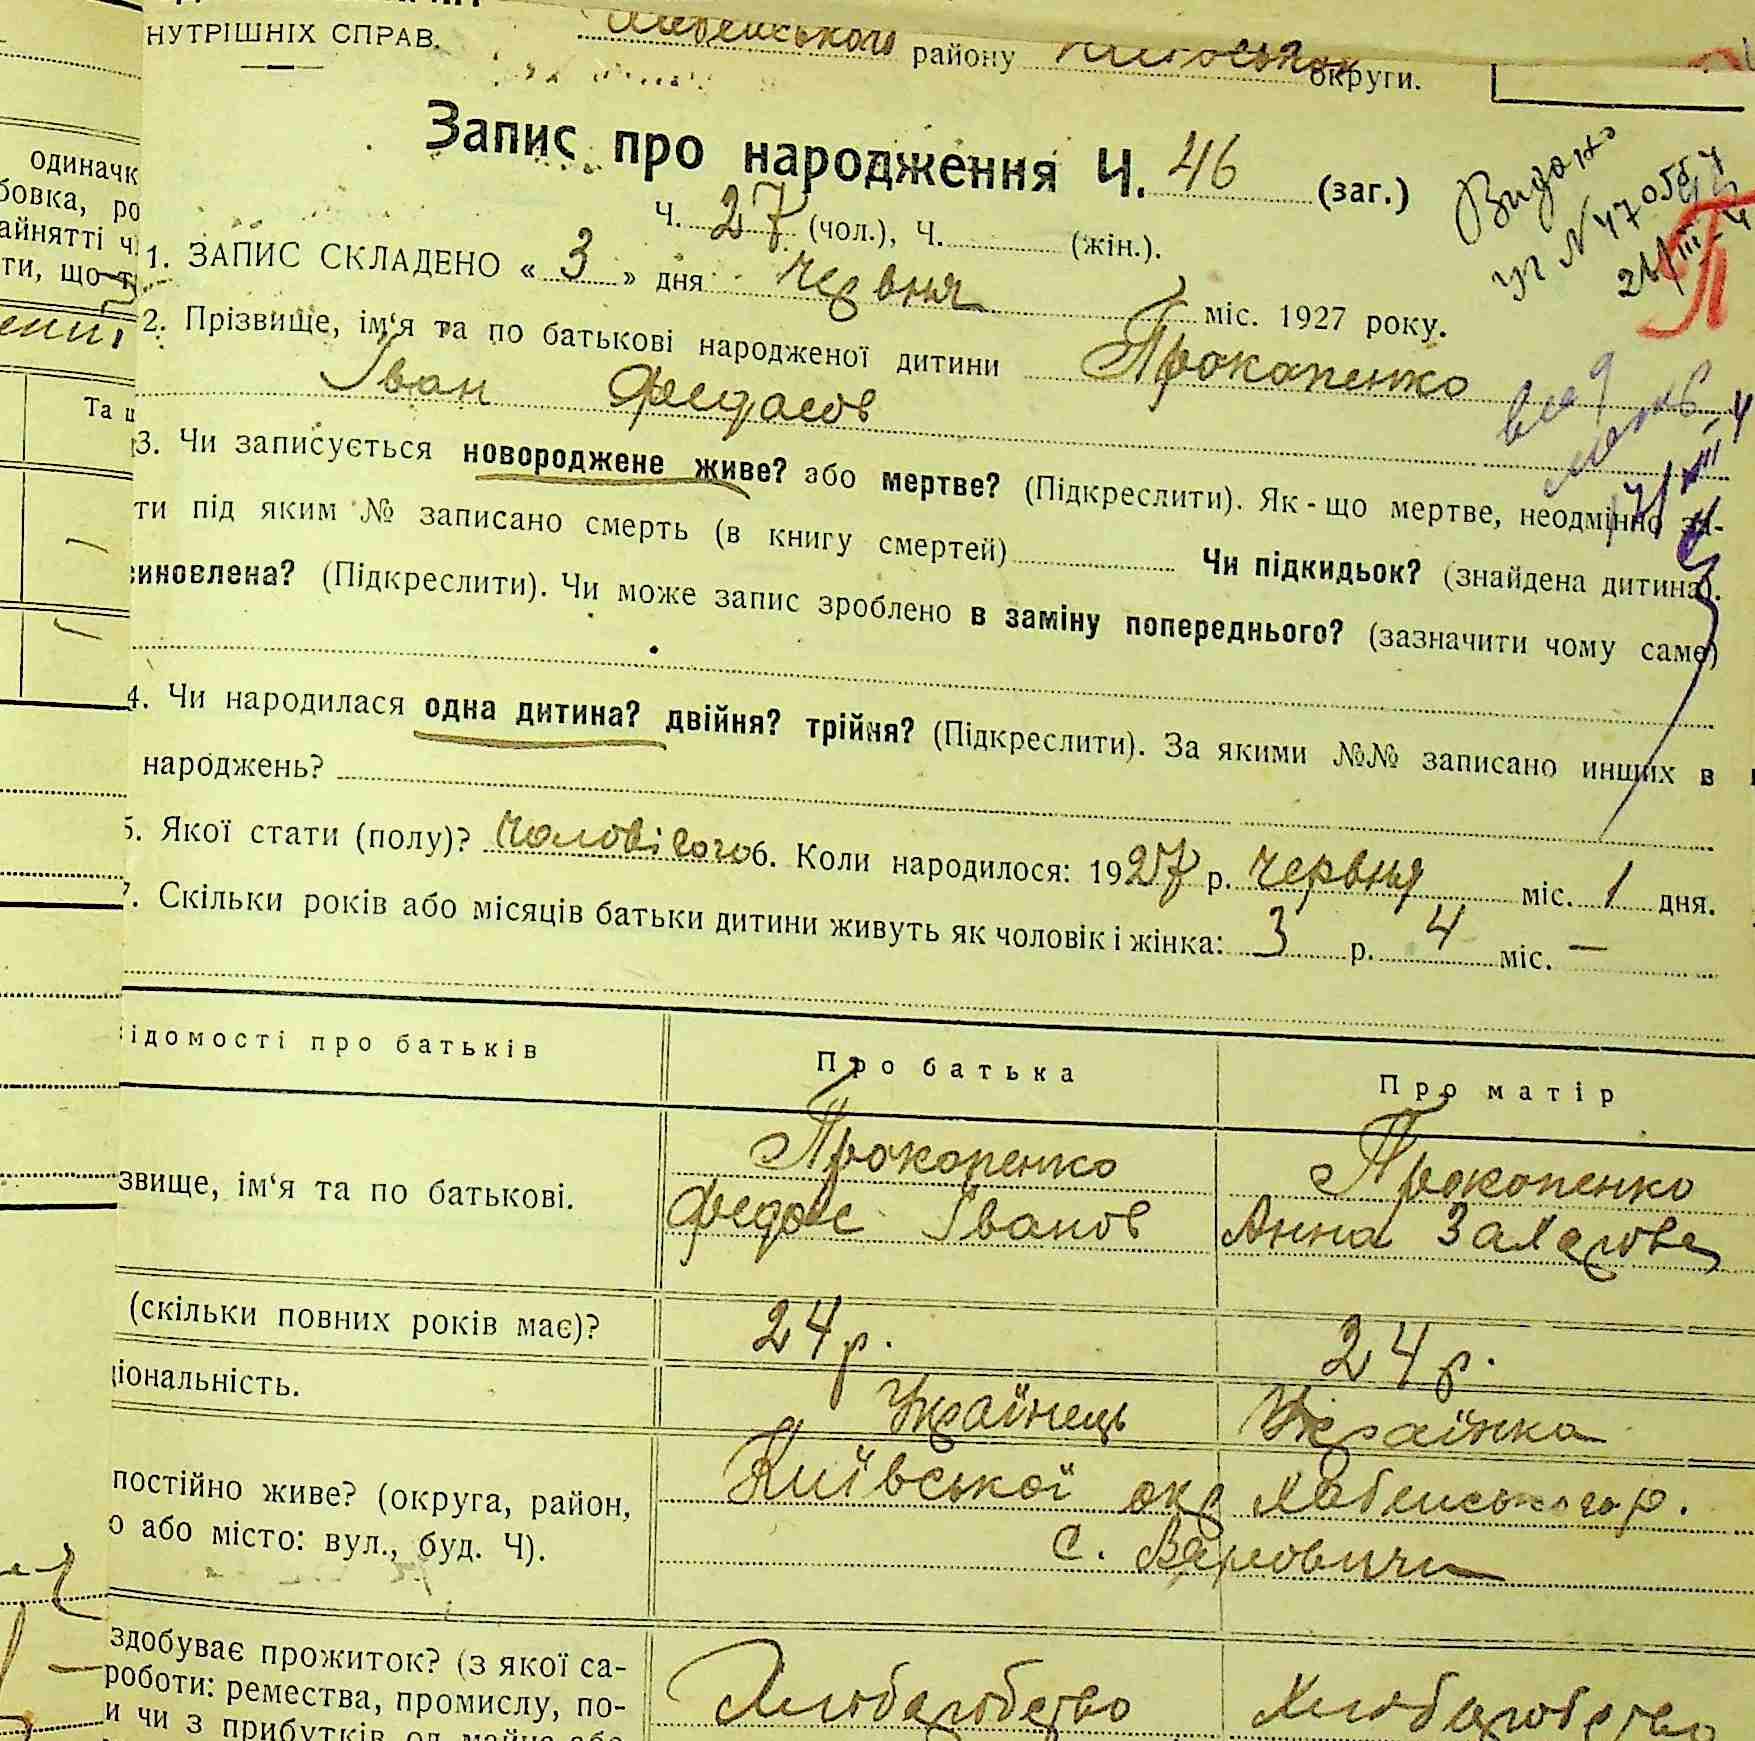 НУТРІШНІХ СПРАВ.
району округи.
Запис про народження Ч. 46 (заг.)
Ч. 27 (чол.), Ч. (жін.).
Видано
1. ЗАПИС СКЛАДЕНО « 3 » дня червня міс. 1927 року.
2. Прізвище, ім'я та по батькові народженої дитини Прокопенко
Іван Федосов
3. Чи записується новороджене живе? або мертве? (Підкреслити). Як-що мертве, неодмінно за-
ти під яким № записано смерть (в книгу смертей) Чи підкидьок? (знайдена дитина).
иновлена? (Підкреслити). Чи може запис зроблено в заміну попереднього? (зазначити чому саме)
4. Чи народилася одна дитина? двійня? трійня? (Підкреслити). За якими №№ записано инших в
народжень?
5. Якої стати (полу)? чоловічого 6. Коли народилося: 1927 р. червня міс. 1 дня.
7. Скільки років або місяців батьки дитини живуть як чоловік і жінка: 3 р. 4 міс. —
ідомості про батьків Про батька Про матір
звище, ім'я та по батькові. Прокопенко Прокопенко
Федос Іванов Анна Захарова
(скільки повних років має)? 24 р. 24 р.
ціональність. Українець Українка
постійно живе? (округа, район, Київської окр Хабенського р.
о або місто: вул., буд. Ч). с. Варовичи
здобуває прожиток? (з якої са-
роботи: ремества, промислу, по- Хлюбаробство Хлюбаробство
и чи з прибутків од майна або
одиначк
бовка, ро
айнятті ч
ти, що т
Та